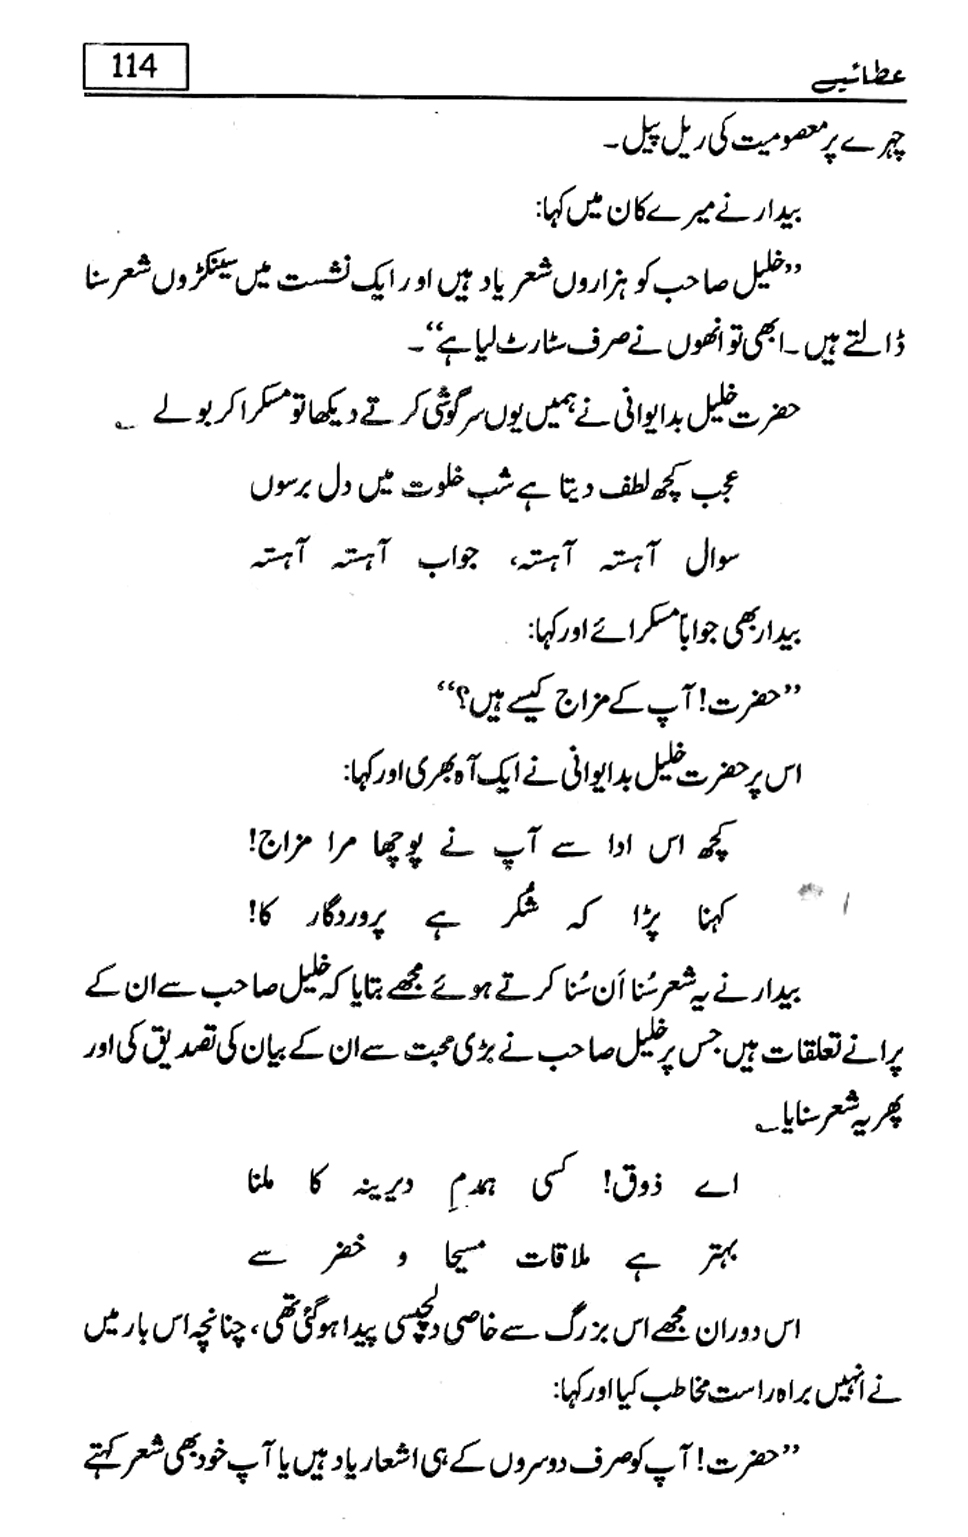 عطائیے
114
چہرے پر معصومیت کی ریل پیل۔
بیدار نے میرے کان میں کہا:
”خلیل صاحب کو ہزاروں شعر یاد ہیں اور ایک نشست میں سینکڑوں شعر سنا
ڈالتے ہیں۔ ابھی تو انھوں نے صرف سٹارٹ لیا ہے“۔
حضرت خلیل بدایوانی نے ہمیں یوں سرگوشی کرتے دیکھا تو مسکرا کر بولے ؎
عجب کچھ لطف دیتا ہے شب خلوت میں دل برسوں
سوال آہستہ آہستہ، جواب آہستہ آہستہ
بیدار بھی جواباً مسکرائے اور کہا:
”حضرت! آپ کے مزاج کیسے ہیں؟“
اس پر حضرت خلیل بدایوانی نے ایک آہ بھری اور کہا:
کچھ اس ادا سے آپ نے پوچھا مرا مزاج!
کہنا پڑا کہ شُکر ہے پروردگار کا!
بیدار نے یہ شعر سُنا اَن سُنا کرتے ہوئے مجھے بتایا کہ خلیل صاحب سے ان کے
پرانے تعلقات ہیں جس پر خلیل صاحب نے بڑی محبت سے ان کے بیان کی تصدیق کی اور
پھر یہ شعر سنایا؎
اے ذوق! کسی ہمدمِ دیرینہ کا ملنا
بہتر ہے ملاقات مسیحا و خضر سے
اس دوران مجھے اس بزرگ سے خاصی دلچسپی پیدا ہوگئی تھی، چنانچہ اس بار میں
نے انہیں براہ راست مخاطب کیا اور کہا:
”حضرت! آپ کو صرف دوسروں کے ہی اشعار یاد ہیں یا آپ خود بھی شعر کہتے